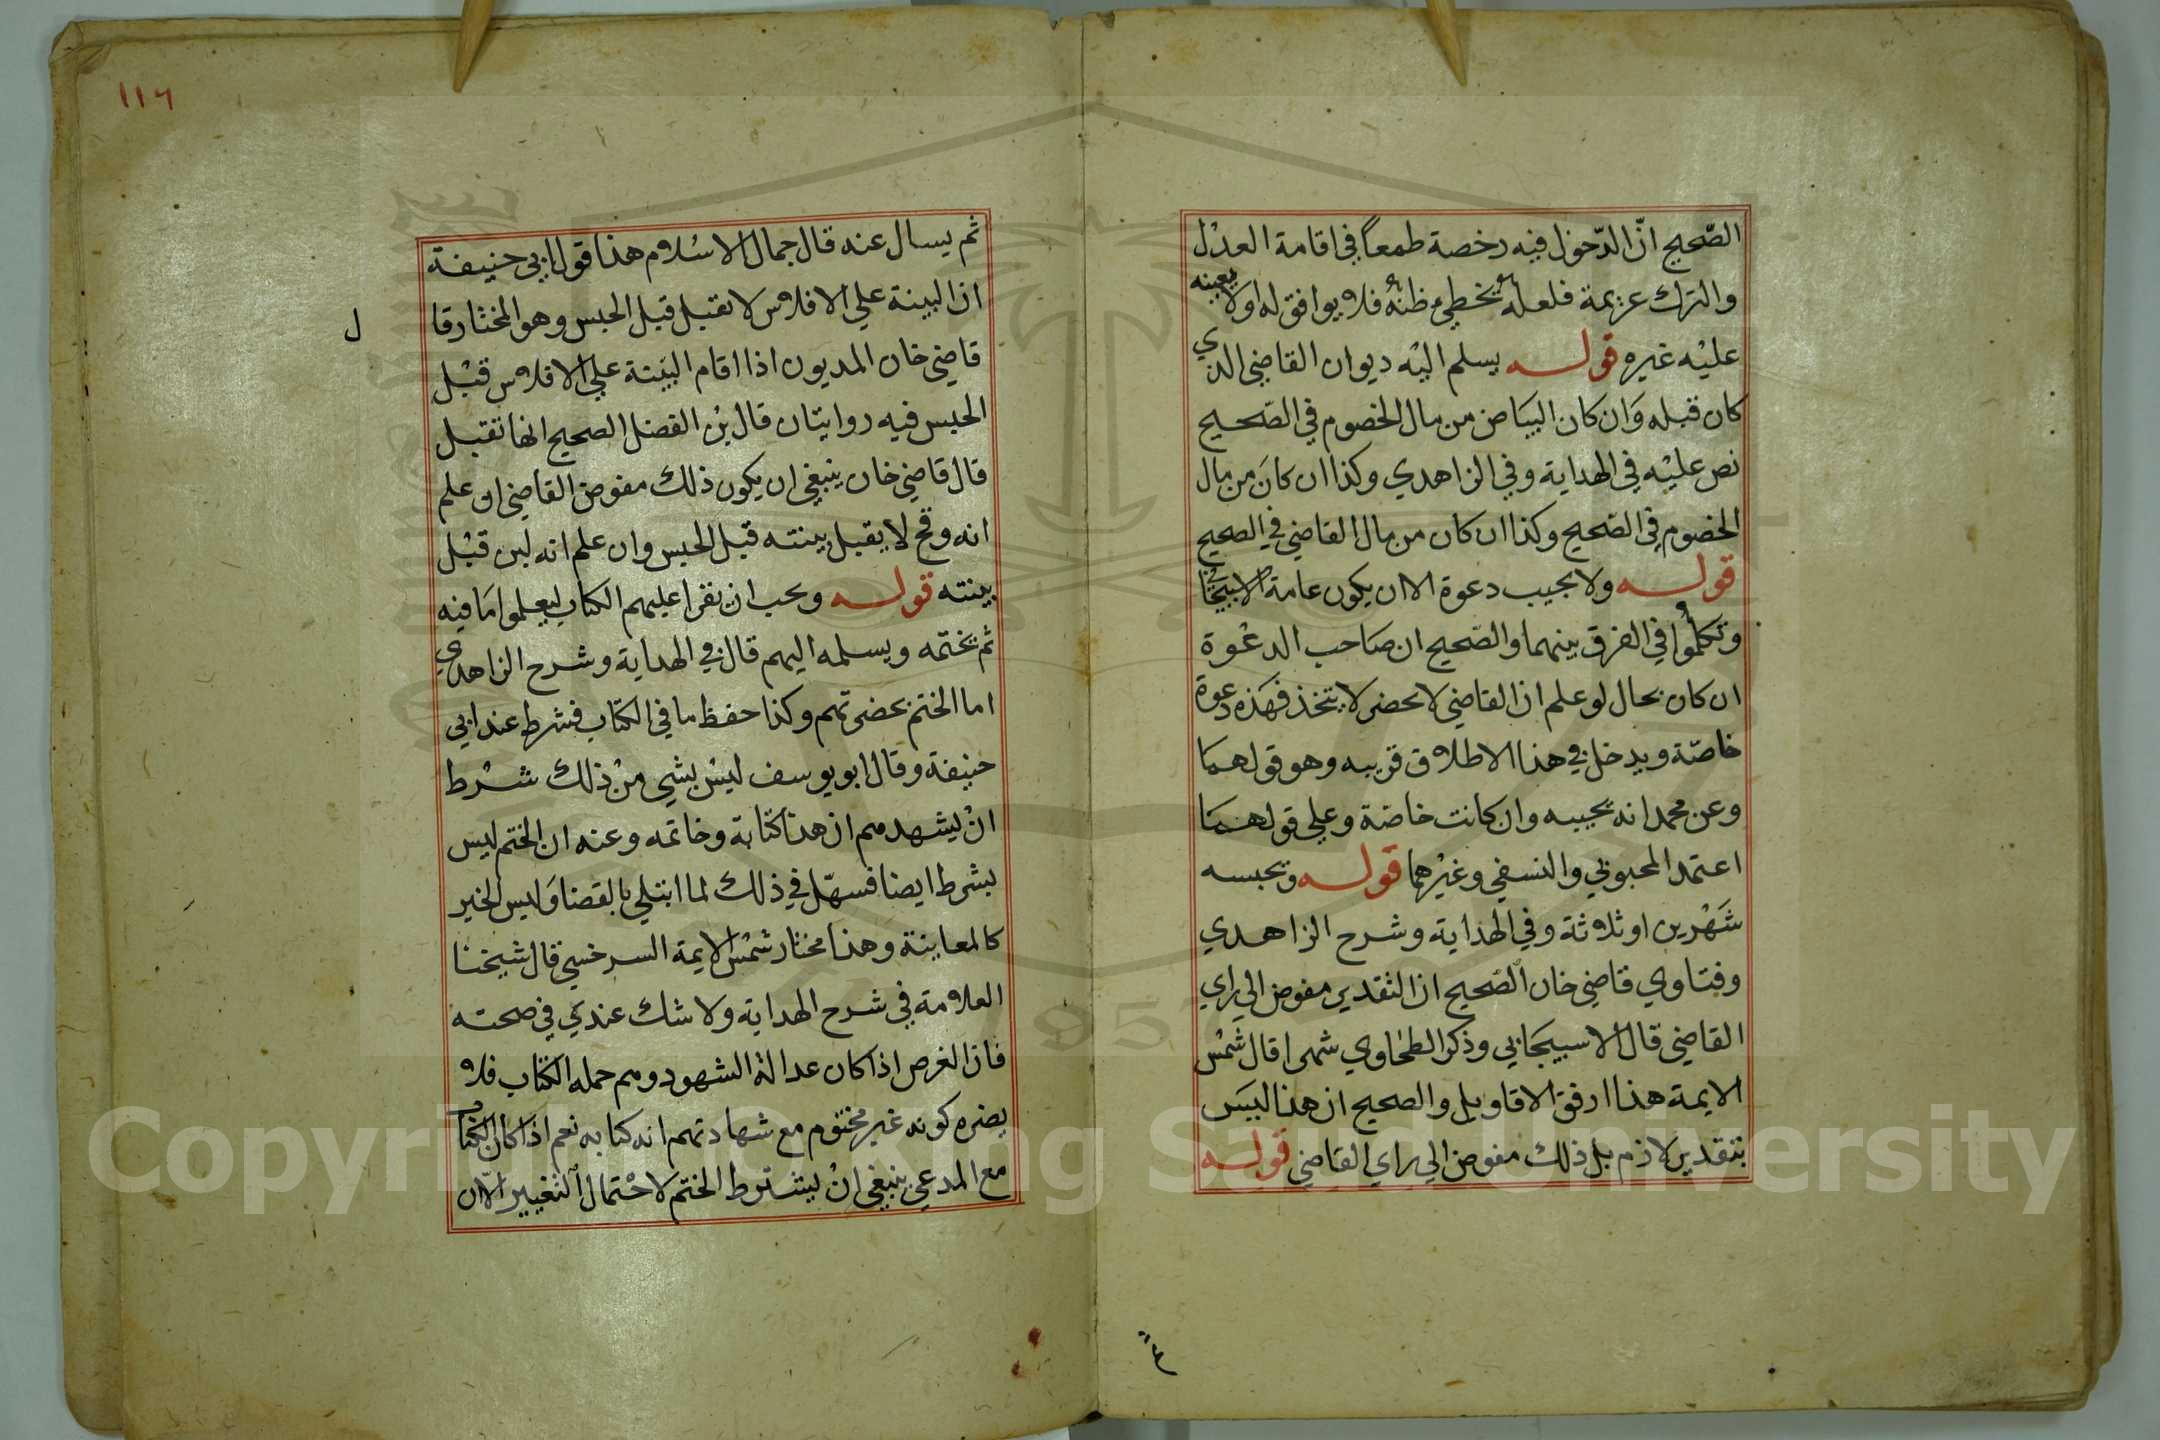 الصّحيح انّ الدّخول فيه رخصة طمعاً في اقامة العدل
والترك عزيمة فلعله يخطئ ظنه فلا يوافق له اولا يعينه
عليْه غيره قولــه يسلم اليْه ديوان القاضي الذي
كان قبله وَان كان البيَاض من مال الخصوم في الصّحيح
نص عليْه في الهداية وفي الزاهدي وكذا ان كانَ من مال
الخصوم في الصّحيح وكذا ان كان من مال القاضي في الصحيح
قولــه ولا يجيب دعوة الا ان يكون عامة
وتكلموا في الفرق بينهما والصّحيح ان صَاحب الدعْوة
ان كان بحال لو علم ان القاضي لا يحضر لا يتخذ فهَذه دعوة
خاصّة ويدخل في هذا الاطلاق قريبه وهو قولهمَا
وعن محمد انه يجيبه وان كانت خاصّة وعلي قولهمَا
اعتمد المحبوبي والنسفي وغيْرهما قولــه ويحبسه
شَهْرين او ثلاثة وفي الهداية وشرح الزاهدي
وفتاوي قاضي خان الصّحيح ان التقدير مفوض الي راي
القاضي قال الاسبيجَابي وذكر الطحَاوي شهرا قال شمْس
الايمة هذا ارفق الاقاويل والصحيح ان هذا ليسَ
بتقدير لازم بل ذلك مفوض الي راي القاضي قولــه
١١٦
ثم يسال عنه قال جمال الاسْلام هذا قول ابي حنيفة
ان البينة علي الافلاس لا تقبل قبل الحبس وهو المختار قا
ل
قاضي خان المديون اذا اقام البيَنة علي الافلاس قبْل
الحبس فيه روايتان قال بْن الفضل الصحيح انها تقبل
قال قاضي خان ينبغي ان يكون ذلك مفوض القاضي ان علم
انه وقح لا يقبل بينته قبل الحبس وان علم انه لين قبْل
بينته قولــه ويجب ان يقرا عليهم الكتاب ليعلموا مَا فيه
ثم يختمه ويسلمه اليهم قال في الهداية وشرح الزاهدي
اما الختم بحضرتهم وكذا حفظ ما في الكتاب فشرط عند ابي
حنيفة وقال ابو يوسف ليْس بشي منْ ذلك شرْط
انْ يشهدهم ان هذا كتابة وخاتمه وعنه ان الختم ليس
بشرط ايضا فسهّل في ذلك لما ابتلي بالقضا وَليس الخبر
كالمعاينة وهذا مختار شمْس الايمة السرخسي قال شيخنا
العلامة في شرح الهداية ولا شك عندي في صحته
فان الغرض اذا كان عدالة الشهود وهم حمله الكتاب فلا
يضره كونه غير مختوم مع شهادتهم انه كتابه نعم اذا كان الكتاب
مع المدعي ينبغي انْ يشترط الختم لاحْتمال التغيير الا ان
Copyright © King Saud University